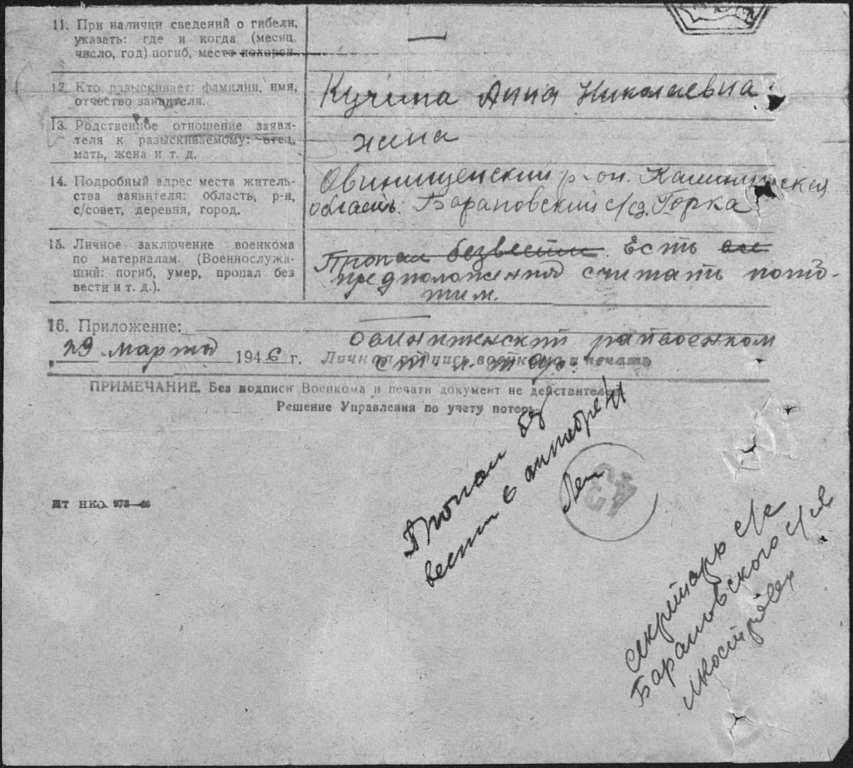 11. При наличии сведений о гибели,
указать: где и когда (месяц,
число, год) погиб, место похорон.
12. Кто разыскивает: фамилия, имя,
отчество заявителя.
Кучина Анна Николаевна
13. Родственное отношение заяви-
теля к разыскиваемому: отец,
мать, жена и т. д.
жена
14. Подробный адрес места житель-
ства заявителя: область, р-н,
с/совет, деревня, город.
Овинищенский р-он. Калининская
область. Барановский с/с д. Горка
15. Личное заключение военкома
по материалам. (Военнослужа-
щий: погиб, умер, пропал без
вести и т. д.).
Пропал безвести Есть
предположения считать погиб-
шим.
16. Приложение:
Овинищенский райвоенком
29 марта 1946 г. Личная подпись военкома и печать
ПРИМЕЧАНИЕ. Без подписи Военкома и печати документ не действителен
Решение Управления по учету потерь
Пропал без
вести в октябре 41
43
Шт НКО
секретарь с/с
Барановского с/с